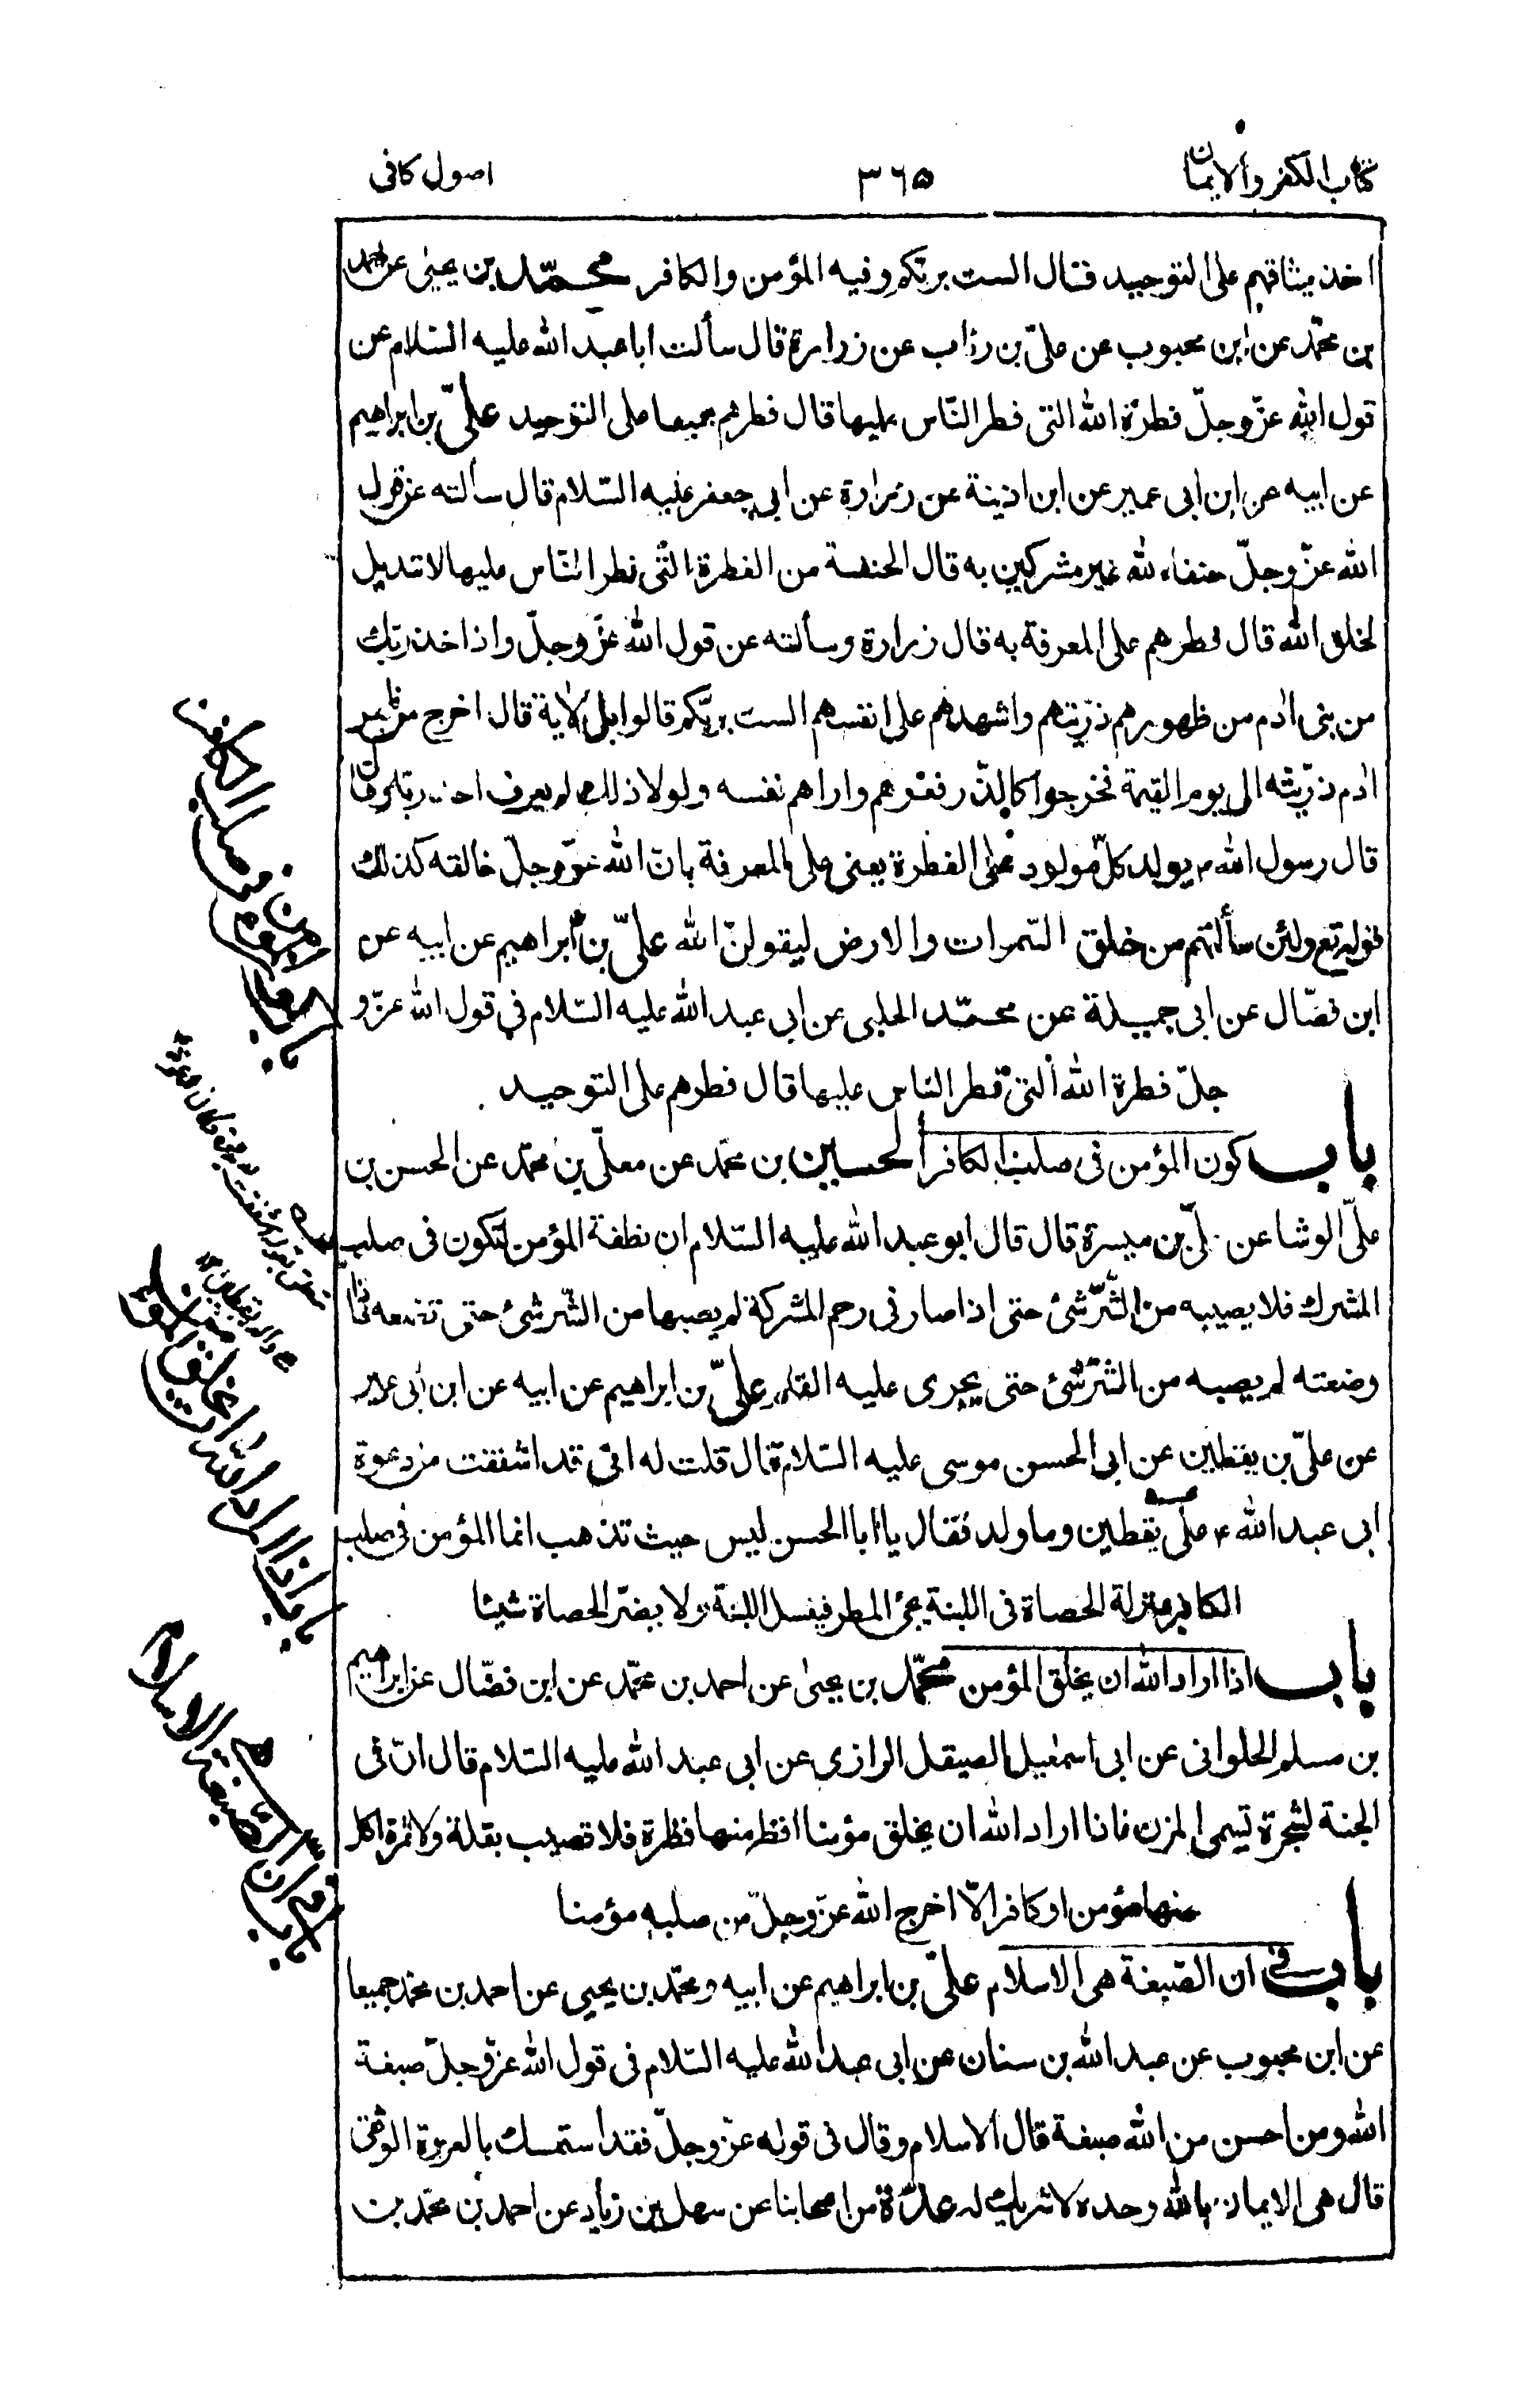 كتاب الكفر والايمان
٣٦٥
اصول كافى
اخذ ميثاقهم على التوحيد فقال الست بربكم وفيه المؤمن والكافر محمّد بن يحيى عن احمد
بن محمّد عن ابن محبوب عن علىّ بن رئاب عن زرارة قال سألت ابا عبد الله عليه السّلام عن
قول الله عزّ وجلّ فطرة الله التى فطر النّاس عليها قال فطرهم جميعا على التوحيد علىّ بن ابراهيم
عن ابيه عن ابن ابى عمير عن ابن اذينة عن زرارة عن ابى جعفر عليه السّلام قال سألته عن قول
الله عزّ وجلّ حنفاء لله غير مشركين به قال الحنيفية من الفطرة الّتى فطر النّاس عليها لا تبديل
لخلق الله قال فطرهم على المعرفة به قال زرارة وسألته عن قول الله عزّ وجلّ واذ اخذ ربّك
من بنى ادم من ظهورهم ذرّيتهم واشهدهم على انفسهم الست بربّكم قالوا بلى الاية قال اخرج من ظهر
ادم ذرّيته الى يوم القيمة فخرجوا كالذّر فعرّفهم واراهم نفسه ولولا ذلك لم يعرف احد ربّه وقال
قال رسول الله ص يولد كلّ مولود على الفطرة يعنى على المعرفة بانّ الله عزّ وجلّ خالقه كذلك
قوله تع ولئن سألتهم من خلق السّموات والارض ليقولنّ الله علىّ بن ابراهيم عن ابيه عن
ابن فضّال عن ابى جميلة عن محمّد الحلبى عن ابى عبد الله عليه السّلام فى قول الله عزّ و
جلّ فطرة الله التى فطر النّاس عليها قال فطرهم على التوحيد
باب كون المؤمن فى صلب الكافر الحسين بن محمّد عن معلّى بن محمّد عن الحسن بن
علىّ الوشا عن علىّ بن ميسرة قال قال ابو عبد الله عليه السّلام ان نطفة المؤمن لتكون فى صلب
المشرك فلا يصيبه من الشّرّ شئ حتى اذا صار فى رحم المشركة لم يصبها من الشّرّ شئ حتى تضعه فاذا
وضعته لم يصبه من الشّرّ شئ حتى يجرى عليه القلم علىّ بن ابراهيم عن ابيه عن ابن ابى عمير
عن علىّ بن يقطين عن ابى الحسن موسى عليه السّلام قال قلت له انّى قد اشفقت من دعوة
ابى عبد الله ع على يقطين وما ولد فقال يا ابا الحسن ليس حيث تذهب انما المؤمن فى صلب
الكافر بمنزلة الحصاة فى اللبنة يجئ المطر فيغسل اللبنة ولا يضرّ الحصاة شيئا
باب اذا اراد الله ان يخلق المؤمن محمّد بن يحيى عن احمد بن محمّد عن ابن فضّال عن ابراهيم
بن مسلم الحلوانى عن ابى اسمعيل الصيقل الرازى عن ابى عبد الله عليه السّلام قال انّ فى
الجنة لشجرة تسمى المزن فاذا اراد الله ان يخلق مؤمنا اقطر منها قطرة فلا تصيب بقلة ولا ثمرة اكل
منها مؤمن او كافر الّا اخرج الله عزّ وجلّ من صلبه مؤمنا
باب فى ان الصّبغة هى الاسلام علىّ بن ابراهيم عن ابيه ومحمّد بن يحيى عن احمد بن محمّد جميعا
عن ابن محبوب عن عبد الله بن سنان عن ابى عبد الله عليه السّلام فى قول الله عزّ وجلّ صبغة
الله ومن احسن من الله صبغة قال الاسلام وقال فى قوله عزّ وجلّ فقد استمسك بالعروة الوثقى
قال هى الايمان بالله وحده لا شريك له عدّة من اصحابنا عن سهل بن زياد عن احمد بن محمّد بن
باب كون المؤمن فى صلب الكافر
باب اذا اراد الله ان يخلق المؤمن
باب فى انّ الصّبغة هى الاسلام